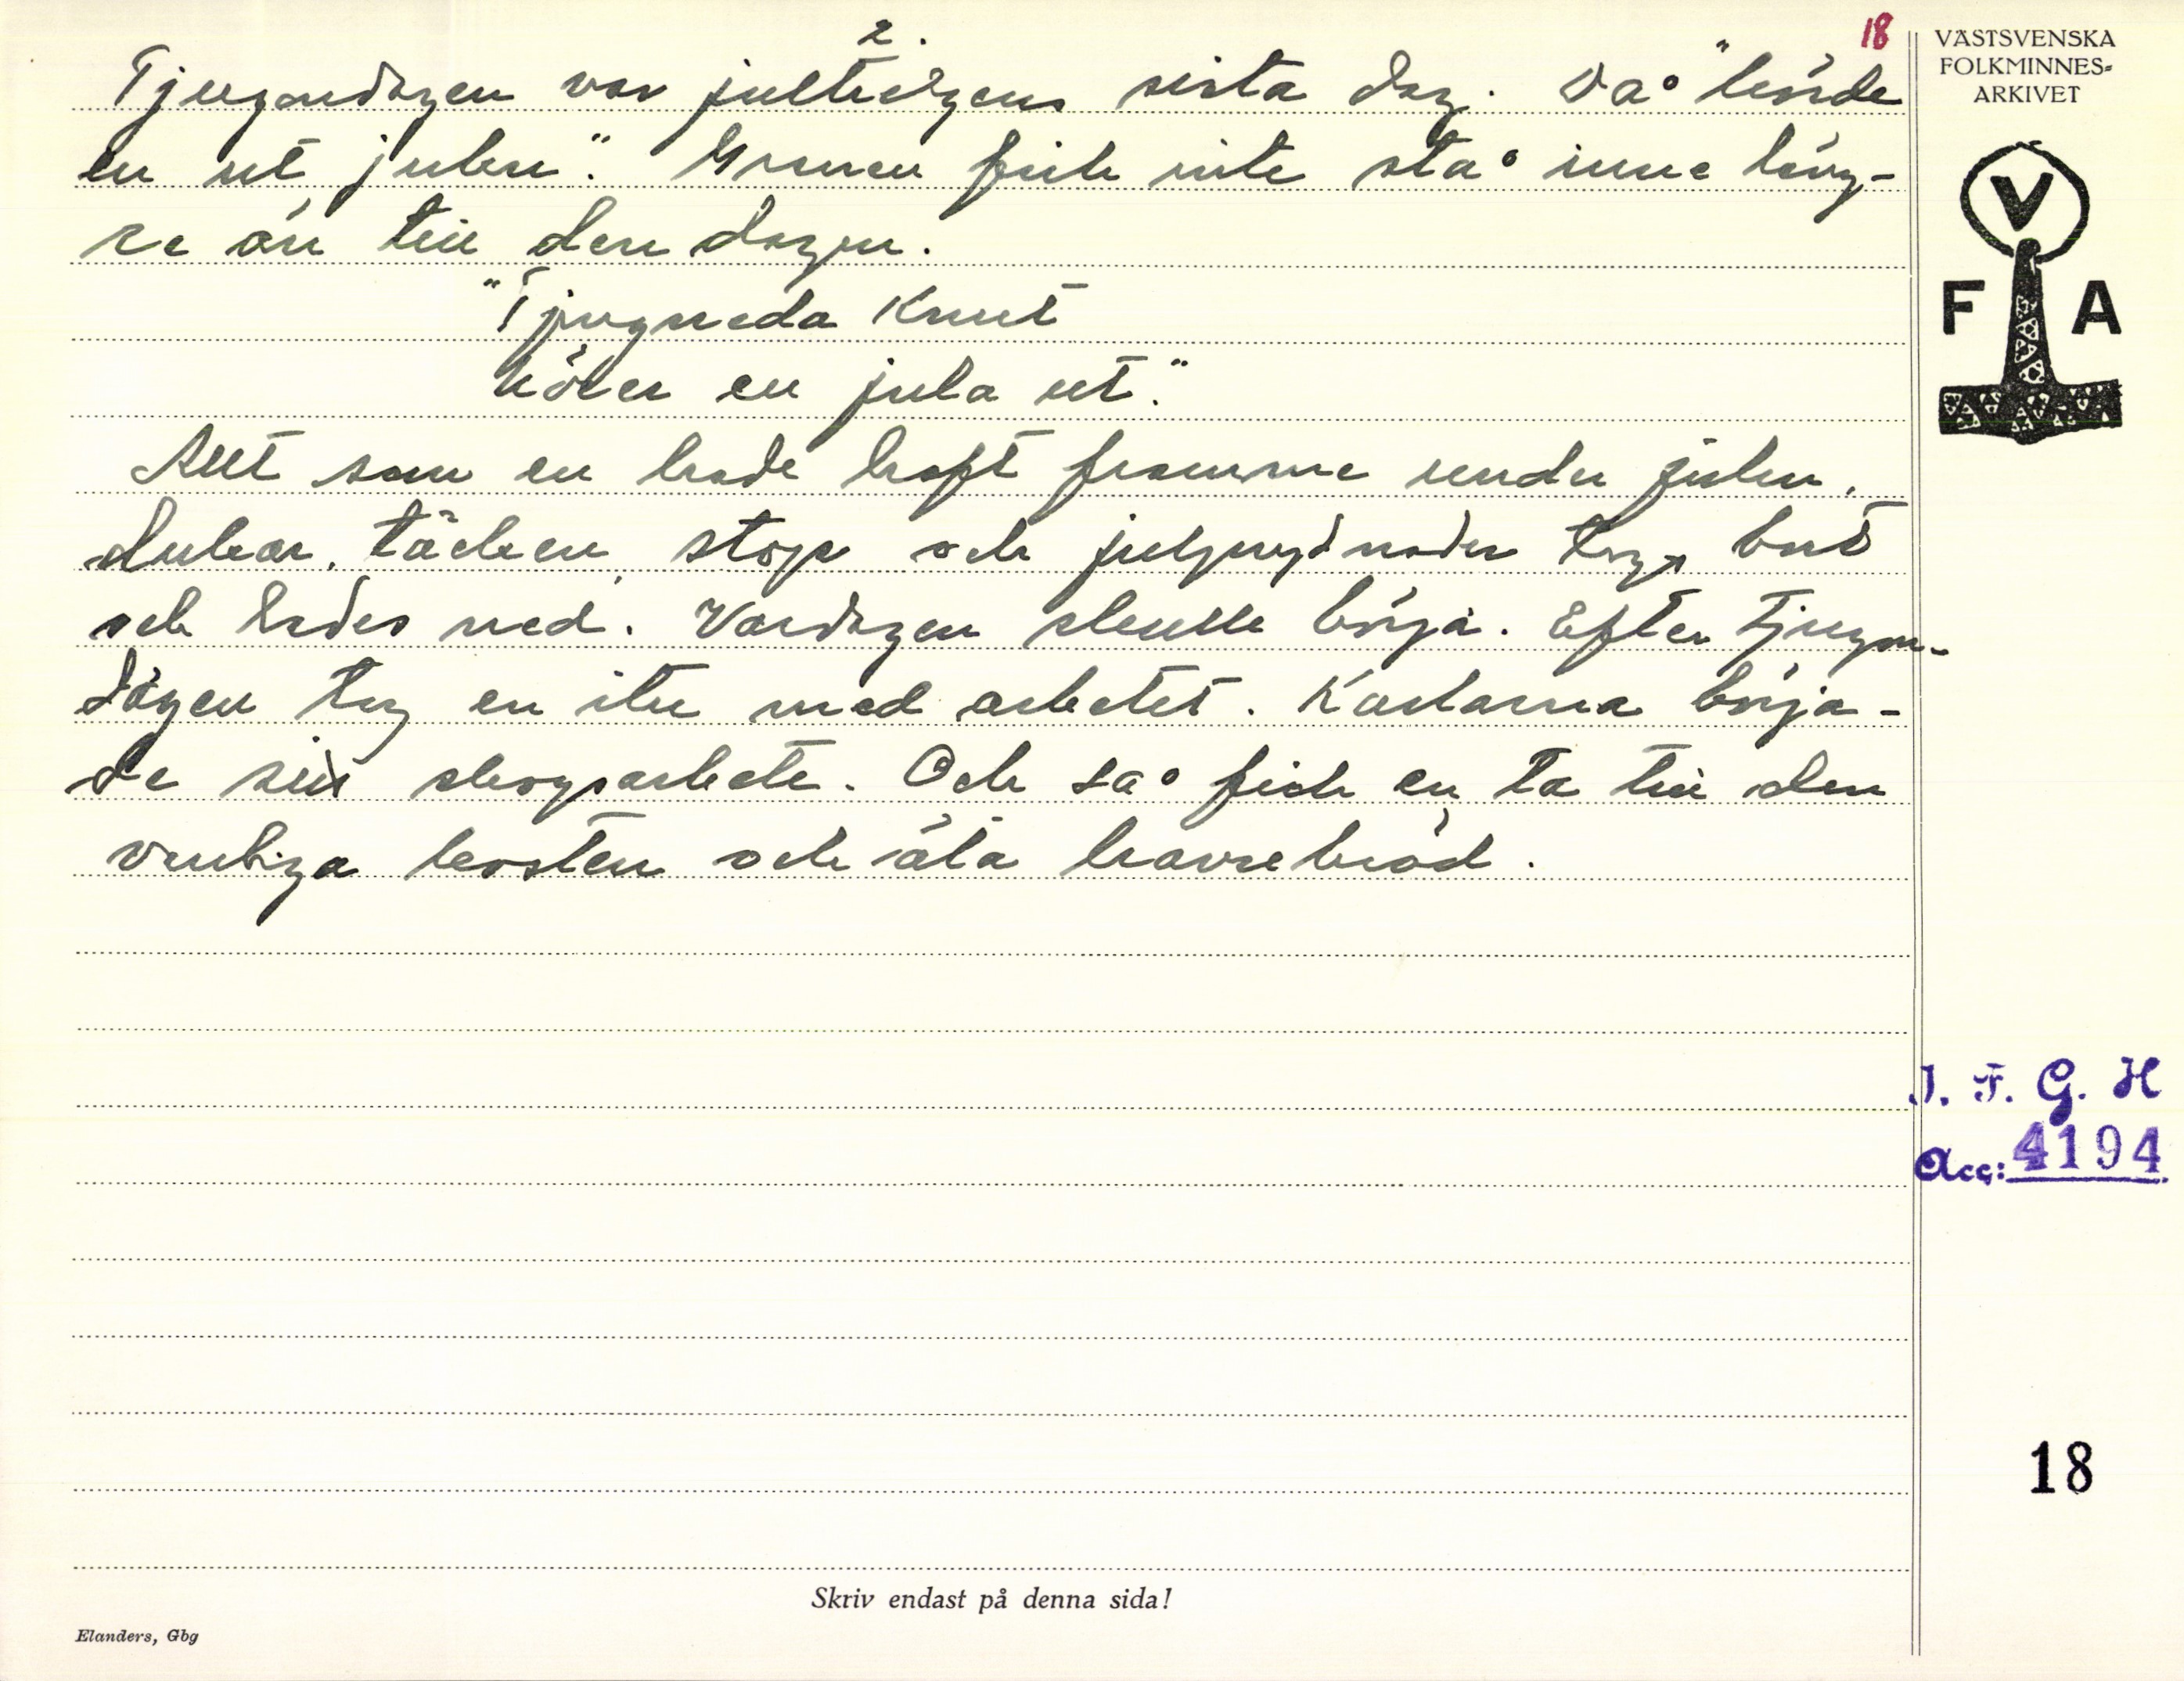 2.
18
Tjugondagen var julhelgens sista dag. Då "körde
en ut julen". Granen fick inte stå inne läng-
re än till den dagen.
"Tjugneda Knut
köres en jula ut."
Allt som en hade haft framme under julen,
dukar, täcken, stop och julprydnader togs bort
och lades ned. Vardagen skulle börja. Efter Tjugon-
dagen tog en itu med arbetet. Karlarna börja-
de sitt skogsarbete. Och så fick en ta till den
vanliga kosten och äta havrebröd.
VÄSTSVENSKA
FOLKMINNES-
ARKIVET
V
F A
I. F. G. H
Acc: 4194
18
Skriv endast på denna sida!
Elanders, Gbg